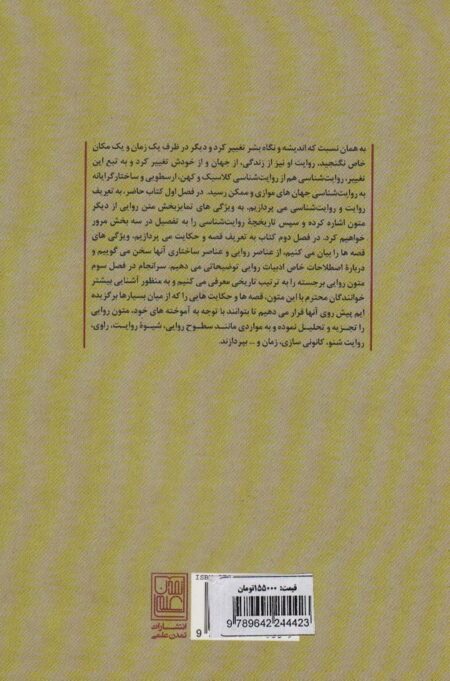 به همان نسبت که اندیشه و نگاه بشر تغییر کرد و دیگر در ظرف یک زمان و یک مکان
خاص نگنجید، روایت او نیز از زندگی، از جهان و از خودش تغییر کرد و به تبع این
تغییر، روایت‌شناسی هم از روایت‌شناسی کلاسیک و کهن، ارسطویی و ساختارگرایانه
به روایت‌شناسی جهان های موازی و ممکن رسید. در فصل اول کتاب حاضر، به تعریف
روایت و روایت‌شناسی می پردازیم، به ویژگی های تمایزبخش متن روایی از دیگر
متون اشاره کرده و سپس تاریخچۀ روایت‌شناسی را به تفصیل در سه بخش مرور
خواهیم کرد. در فصل دوم کتاب به تعریف قصه و حکایت می پردازیم، ویژگی های
قصه ها را بیان می کنیم، از عناصر روایی و عناصر ساختاری آنها سخن می گوییم و
دربارۀ اصطلاحات خاص ادبیات روایی توضیحاتی می دهیم. سرانجام در فصل سوم
متون روایی برجسته را به ترتیب تاریخی معرفی می کنیم و به منظور آشنایی بیشتر
خوانندگان محترم با این متون، قصه ها و حکایت هایی را که از میان بسیارها برگزیده
ایم پیش روی آنها قرار می دهیم تا بتوانند با توجه به آموخته های خود، متون روایی
را تجزیه و تحلیل نموده و به مواردی مانند سطوح روایی، شیوۀ روایت، راوی،
روایت شنو، کانونی سازی، زمان و ... بپردازند.
ISBN
قیمت: ۱۵۵۰۰۰تومان
9 789642 244423
9
تمدن علمی
انتشارات
تمدن علمی